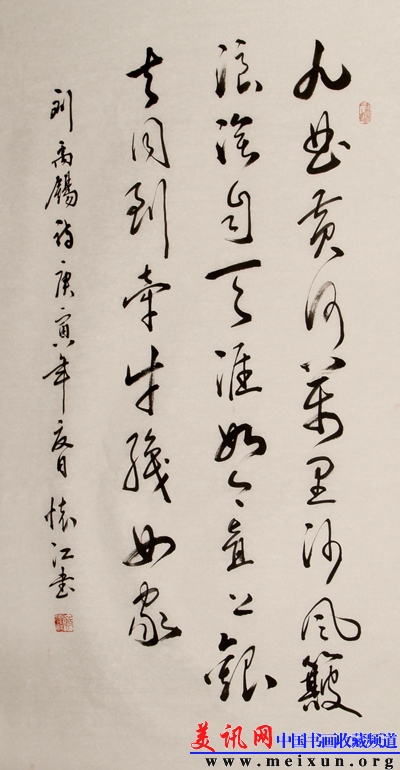 九曲黄河萬里沙风簸
浪淘自天涯如今直上銀
去同到牽牛織女家
刘禹錫詩庚寅年夏日懷江书
美讯网 中国书画收藏频道
www.meixun.org